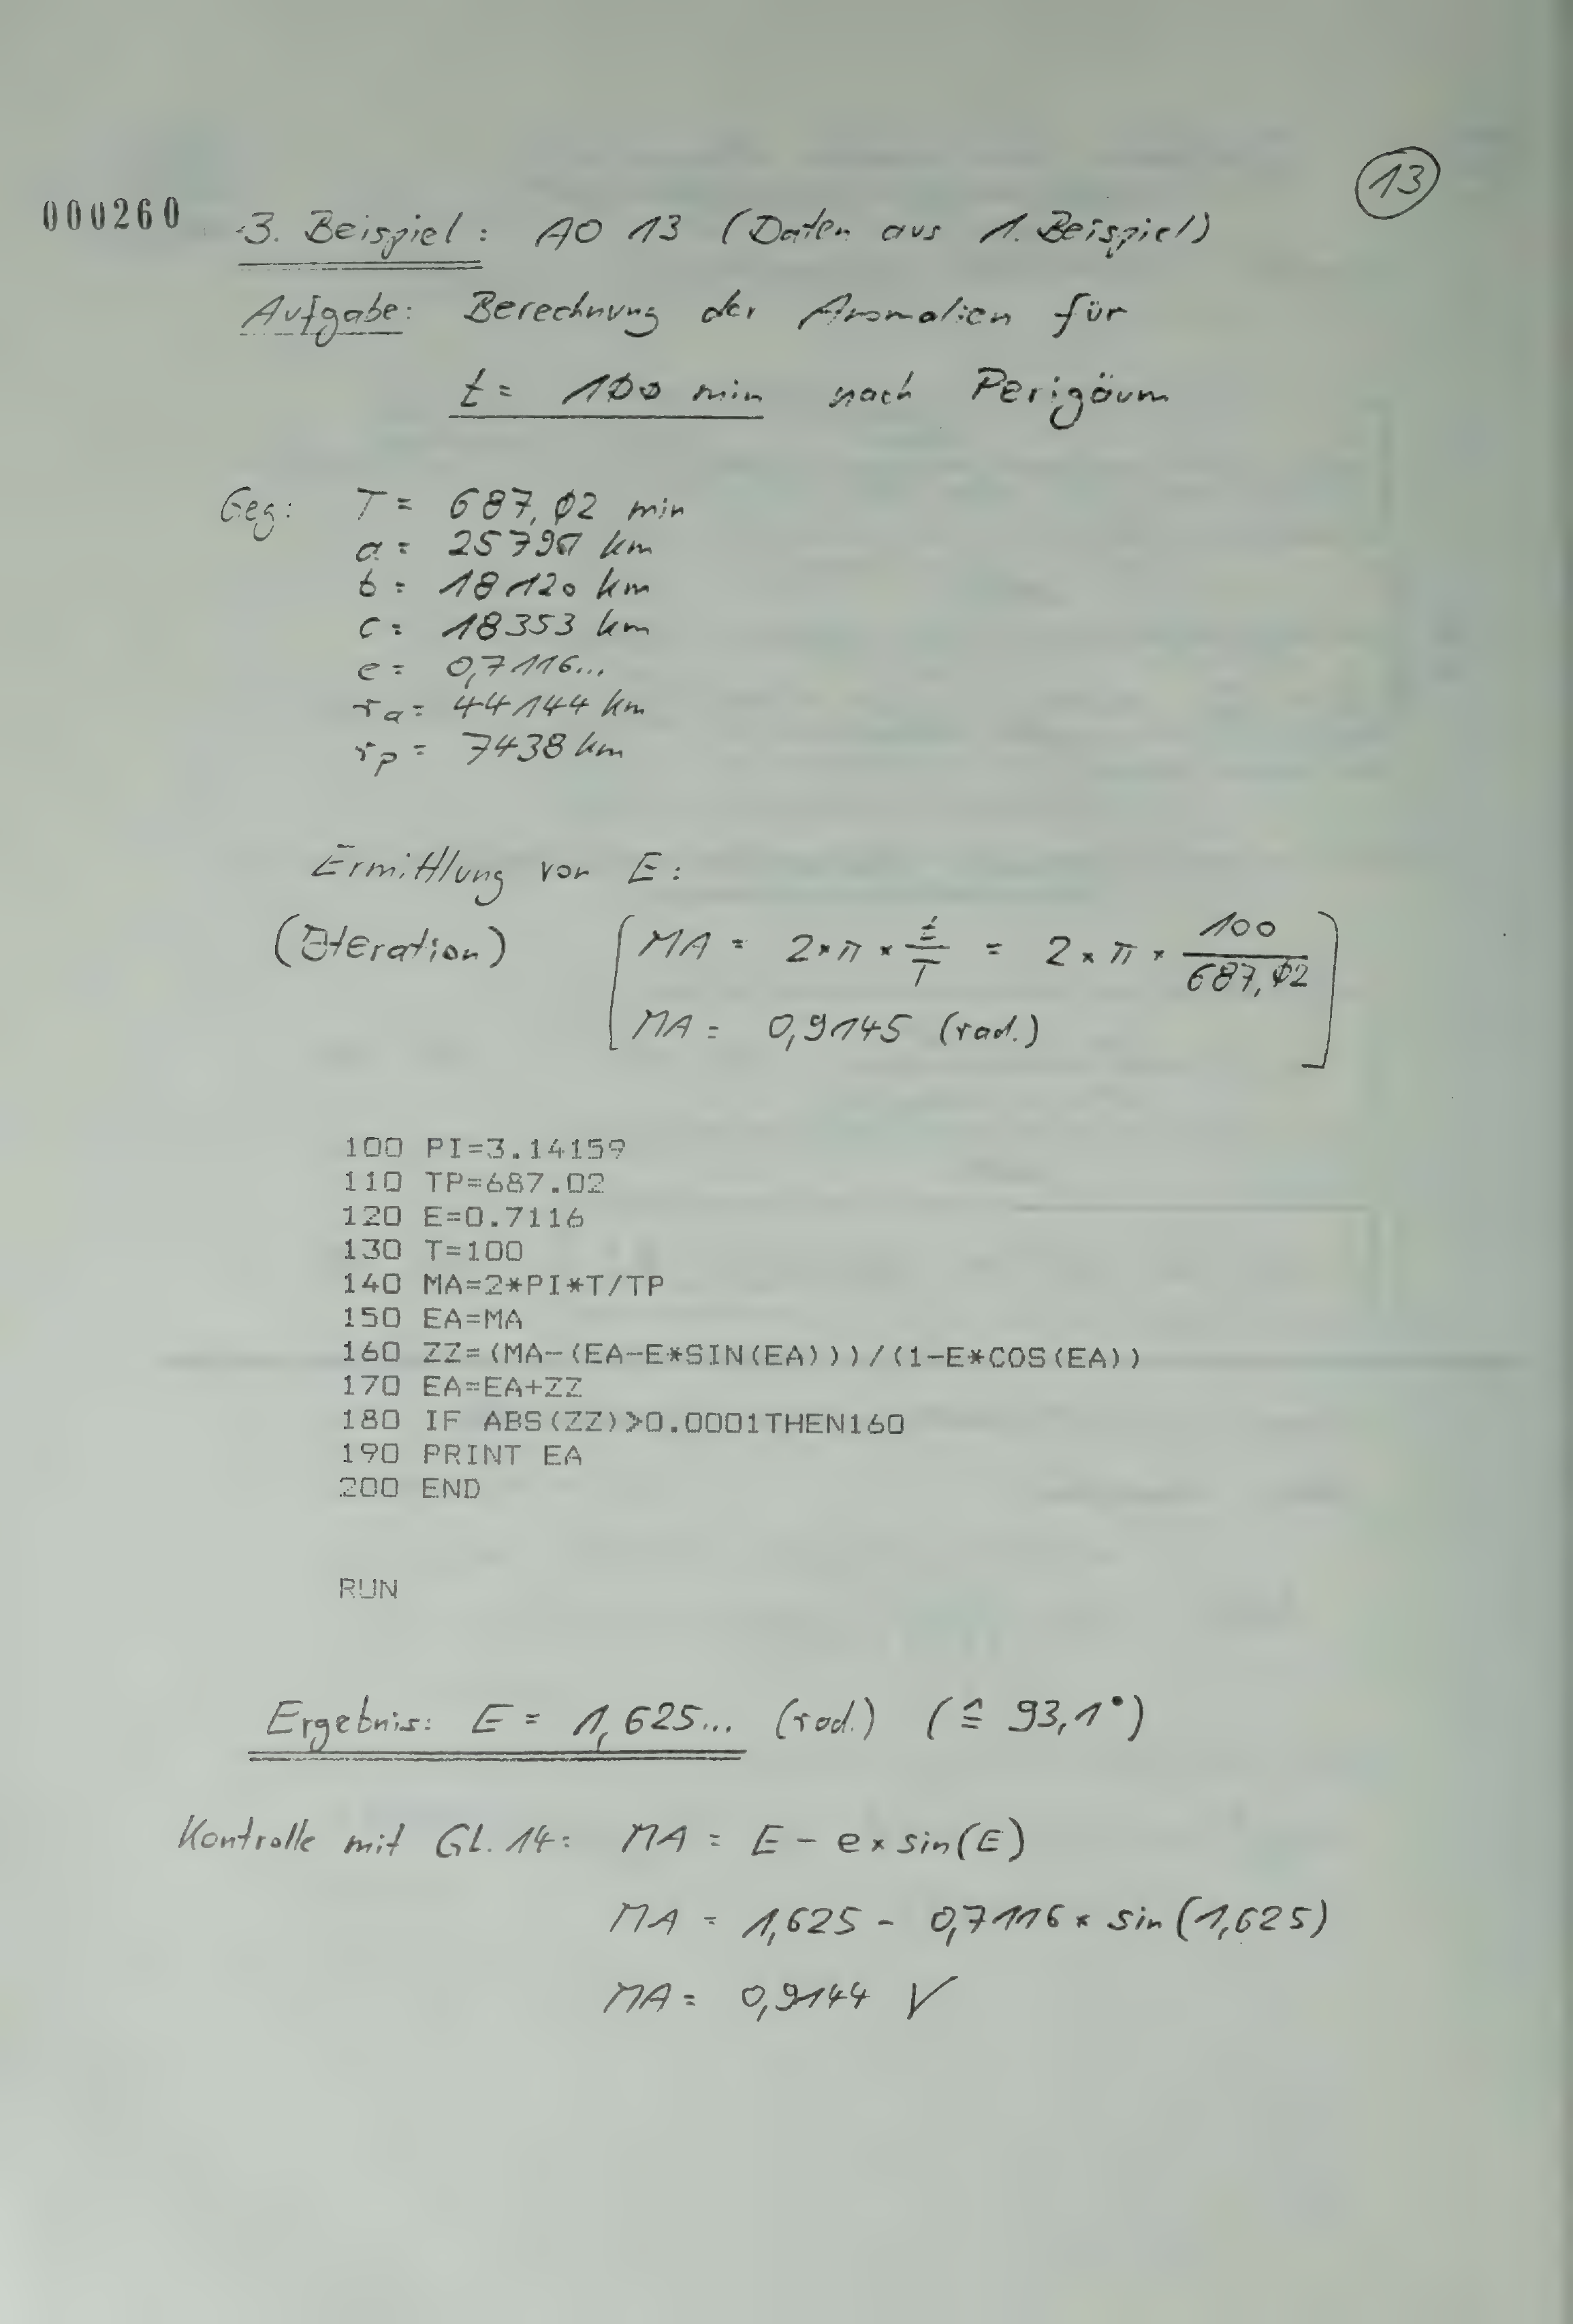 13
000260
3. Beispiel: AO 13 (Daten aus 1. Beispiel)
Aufgabe: Berechnung der Anomalien für
t = 100 min nach Perigäum
Geg: T = 687,02 min
a = 25791 km
b = 18120 km
c = 18353 km
e = 0,7116...
ra = 44144 km
rp = 7438 km
Ermittlung von E:
(Iteration) [MA = 2*π*t/T = 2*π*100/687,02
MA = 0,9145 (rad.)]
100 PI=3.14159
110 TP=687.02
120 E=0.7116
130 T=100
140 MA=2*PI*T/TP
150 EA=MA
160 ZZ=(MA-(EA-E*SIN(EA)))/(1-E*COS(EA))
170 EA=EA+ZZ
180 IF ABS(ZZ)>0.0001THEN160
190 PRINT EA
200 END
RUN
Ergebnis: E = 1,625... (rad.) (≙ 93,1°)
Kontrolle mit Gl. 14: MA = E - e x sin(E)
MA = 1,625 - 0,7116 x sin(1,625)
MA = 0,9144 √